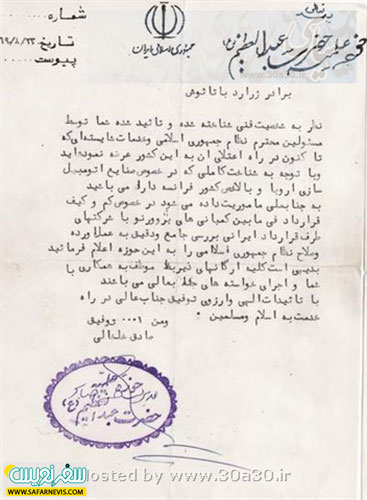 بسمه تعالی
شماره
تاریخ ۶۹/۸/۲۳
پیوست
جمهوری اسلامی ایران
حضرت عبدالعظیم (ع)
برادر ژرارد باتانوش
نظر به شخصیت فنی شناخته شده و تائید شده شما توسط
مسئولین محترم نظام جمهوری اسلامی وخدمات شایسته‌ای که
تا کنون در راه اعتلای ان به این کشور عرضه نموده‌اید
وبا توجه به شناخت کاملی که در خصوص صنایع اتومبیل
سازی اروپا و بالاخص کشور فرانسه دارا می باشید
به جنابعلی ماموریت داده می شود در خصوص کم و کیف
قرارداد فی مابین کمپانی های پژوورنو با شرکتهای
طرف قرارداد ایرانی بررسی جامع ودقیق به عمل اورده
وصلاح نظام جمهوری اسلامی را به این حوزه اعلام فرمائید
بدیهی است کلیه ارگانهای ذیربط موظف به همکاری با
شما و اجرای خواسته های جنابعالی می باشند
با تائیدات الهی وارزوی توفیق جناب عالی در راه
خدمت به اسلام ومسلمین .
ومن ا۰۰۰ توفیق
صادق خلخالی
حضرت عبدالعظیم (ع)
سفرنویس
WWW.SAFARNEVIS.COM
Hosted by www.30a30.ir